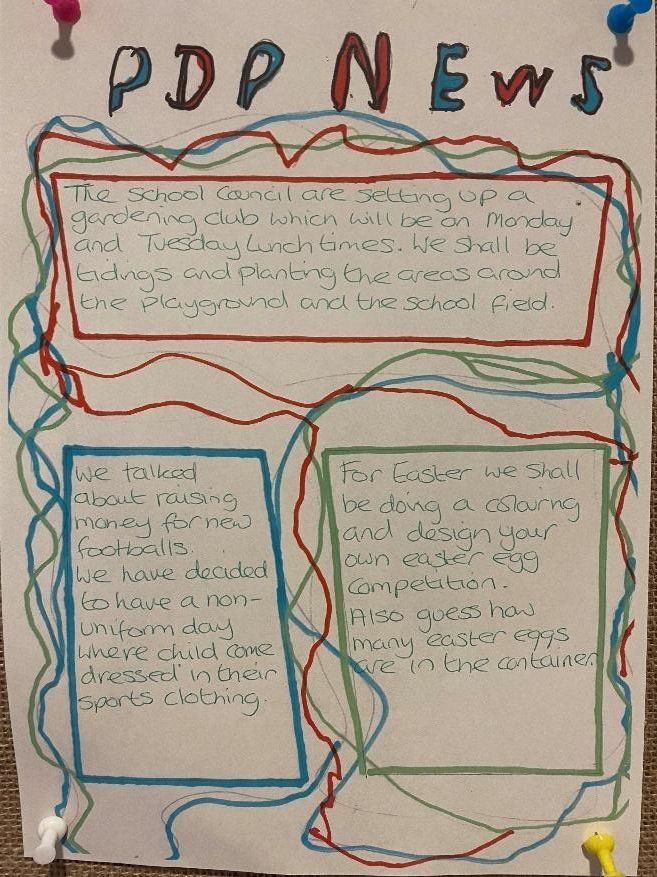 PDP NEWS
The School Council are setting up a
gardening club which will be on Monday
and Tuesday Lunchtimes. We shall be
tidings and planting the areas around
the playground and the school field.
We talked
about raising
money for new
footballs.
We have decided
to have a non-
uniform day
where child come
dressed in their
sports clothing.
For Easter we shall
be doing a colouring
and design your
own easter egg
competition.
Also guess how
many easter eggs
are in the container.